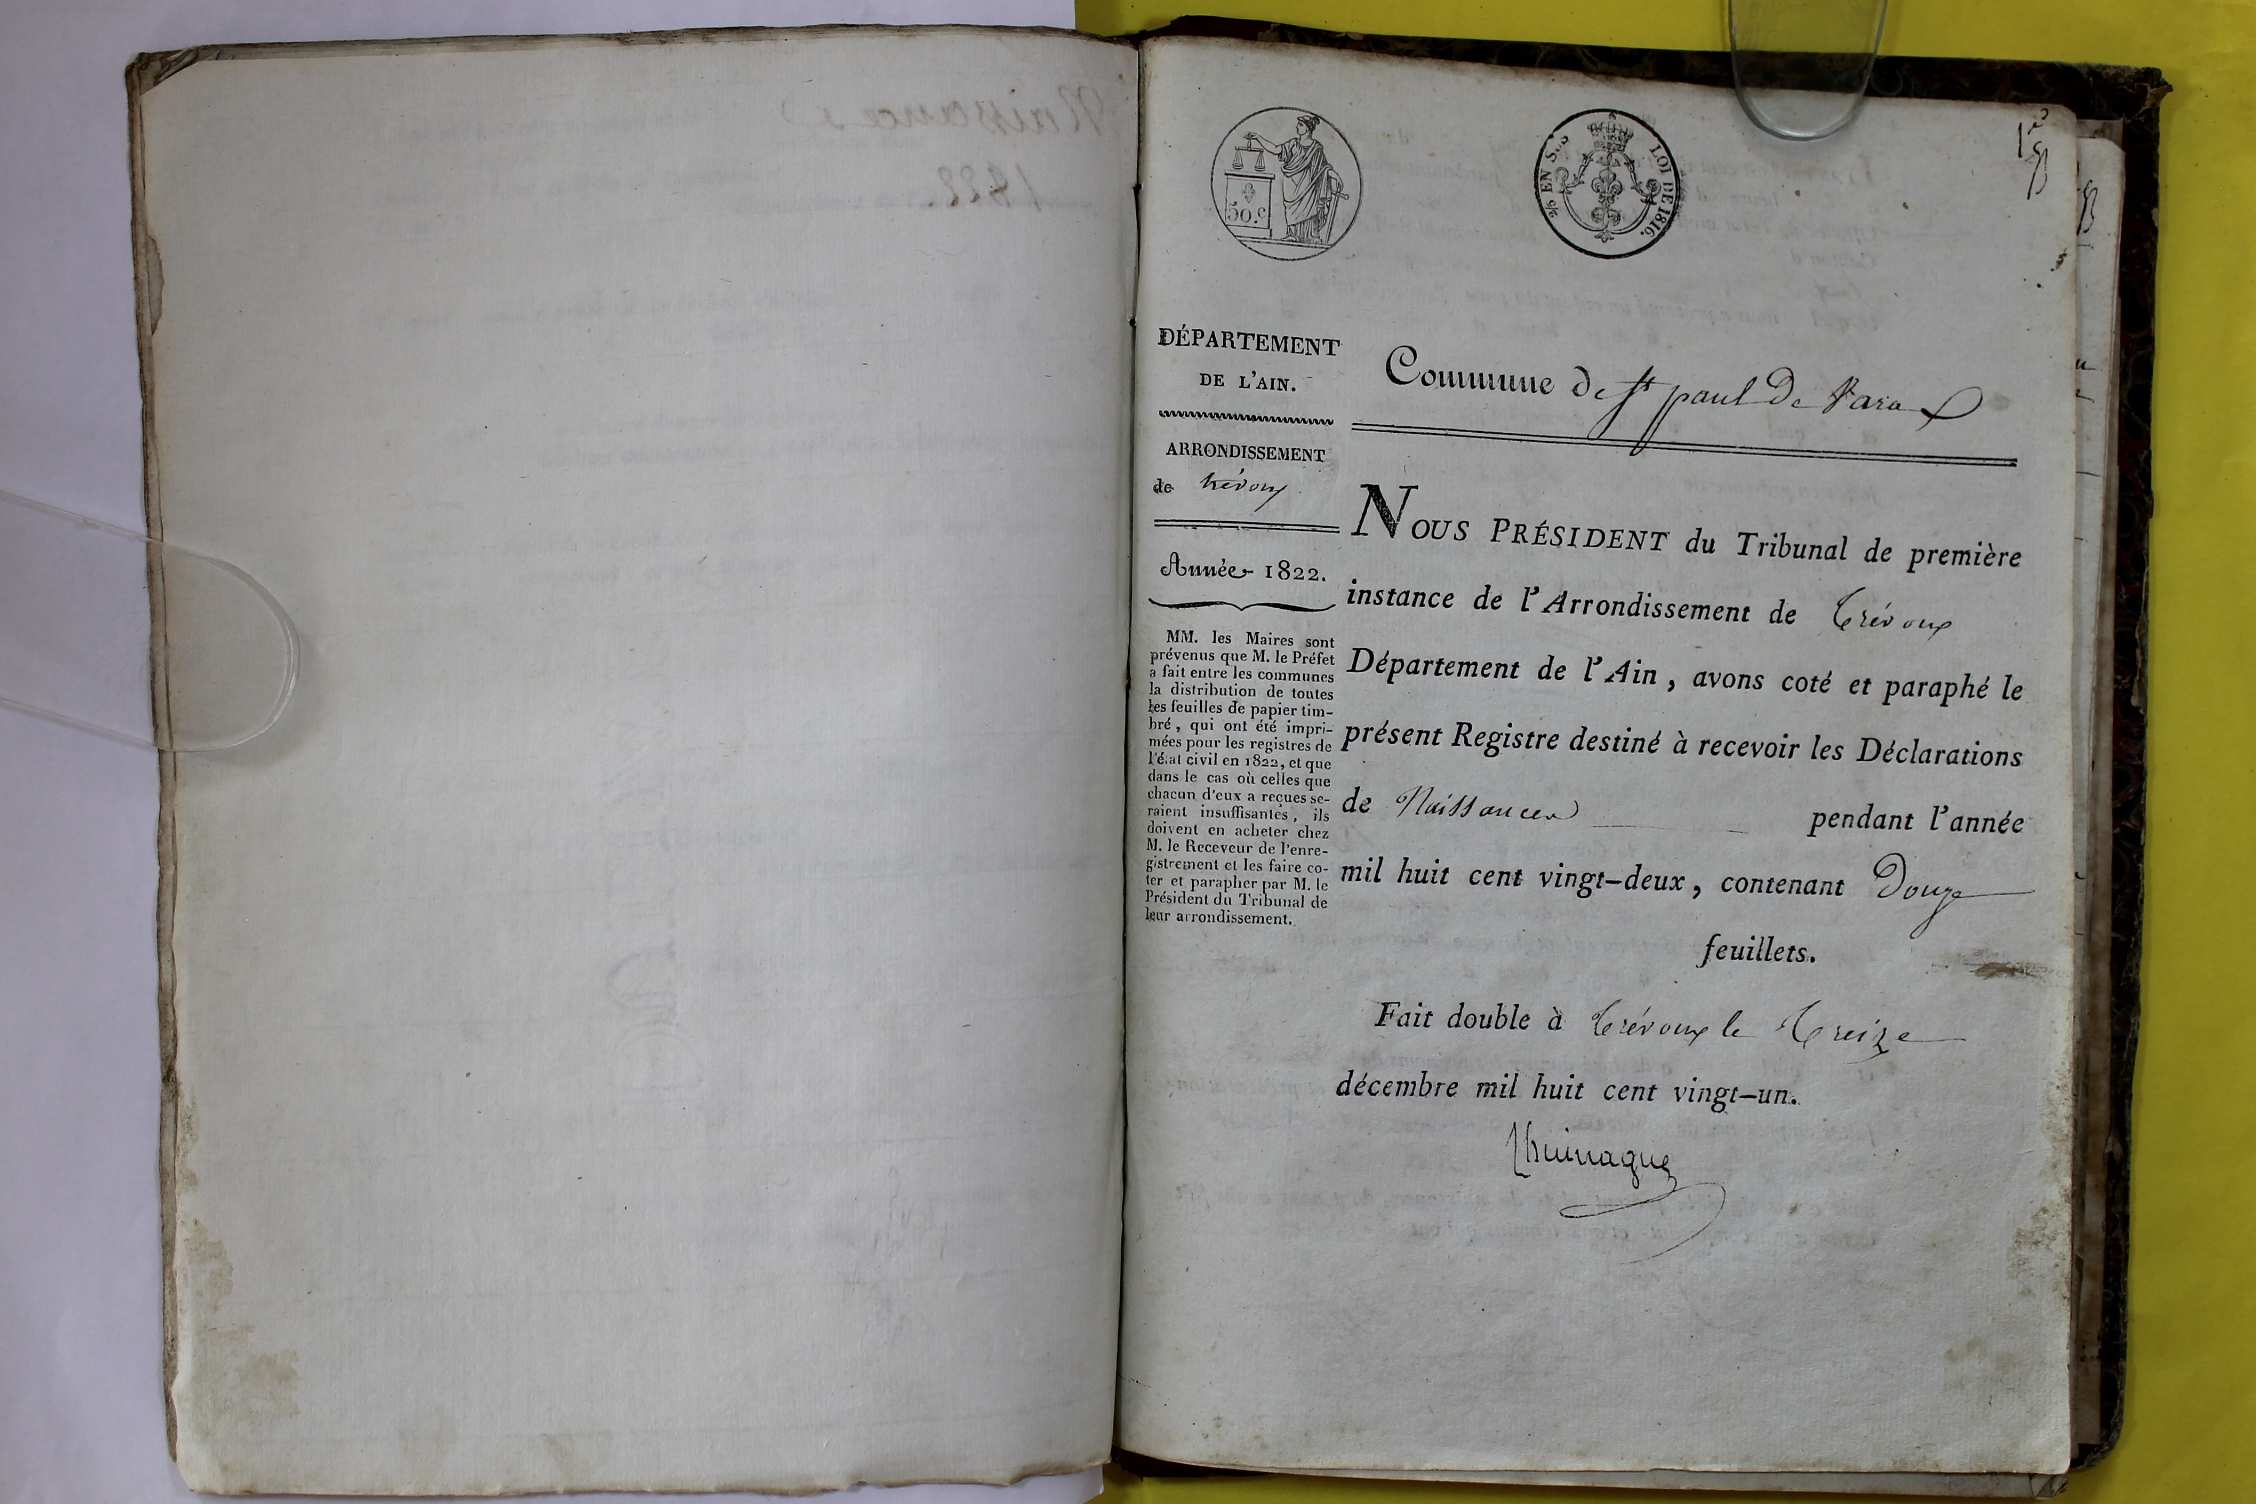 Naissances
1822.
50.c
2/6 EN SUS
LOI DE 1816.
1er
DÉPARTEMENT
DE L'AIN.
ARRONDISSEMENT
de trévoux
Année 1822.
MM. les Maires sont
prévenus que M. le Préfet
a fait entre les communes
la distribution de toutes
les feuilles de papier tim-
bré, qui ont été impri-
mées pour les registres de
l'état civil en 1822, et que
dans le cas où celles que
chacun d'eux a reçues se-
raient insuffisantes, ils
doivent en acheter chez
M. le Receveur de l'enre-
gistrement et les faire co-
ter et parapher par M. le
Président du Tribunal de
leur arrondissement.
Commune de St paul De Varax
NOUS PRÉSIDENT du Tribunal de première
instance de l'Arrondissement de Trévoux
Département de l'Ain, avons coté et paraphé le
présent Registre destiné à recevoir les Déclarations
de Naissances pendant l'année
mil huit cent vingt-deux, contenant Douze
feuillets.
Fait double à Trévoux le Treize
décembre mil huit cent vingt-un.